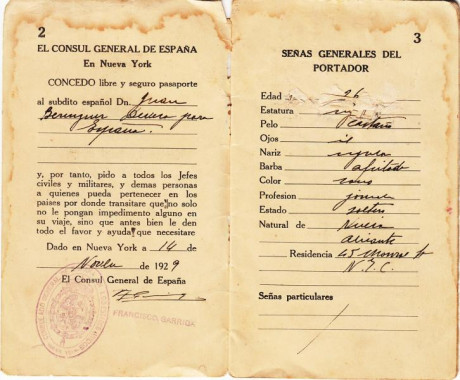 2
EL CONSUL GENERAL DE ESPAÑA
En Nueva York
CONCEDO libre y seguro pasaporte
al subdito español Dn. Juan
para
España.
y, por tanto, pido a todos los Jefes
civiles y militares, y demas personas
a quienes pueda pertenecer en los
paises por donde transitare que no solo
no le pongan impedimento alguno en
su viaje, sino que antes bien le den
todo el favor y ayuda que necesitare
Dado en Nueva York a 14 de
1929
El Consul General de España
FRANCISCO BARRIGA
3
SEÑAS GENERALES DEL
PORTADOR
Edad 26
Estatura
Pelo Castaño
Ojos id
Nariz regular
Barba afeitada
Color sano
Profesion
Estado soltero
Natural de
Alicante
Residencia 45 Monroe St
N.Y.C.
Señas particulares